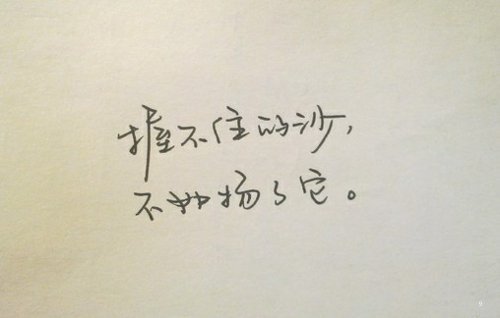 握不住的沙，
不如扬了它。
9